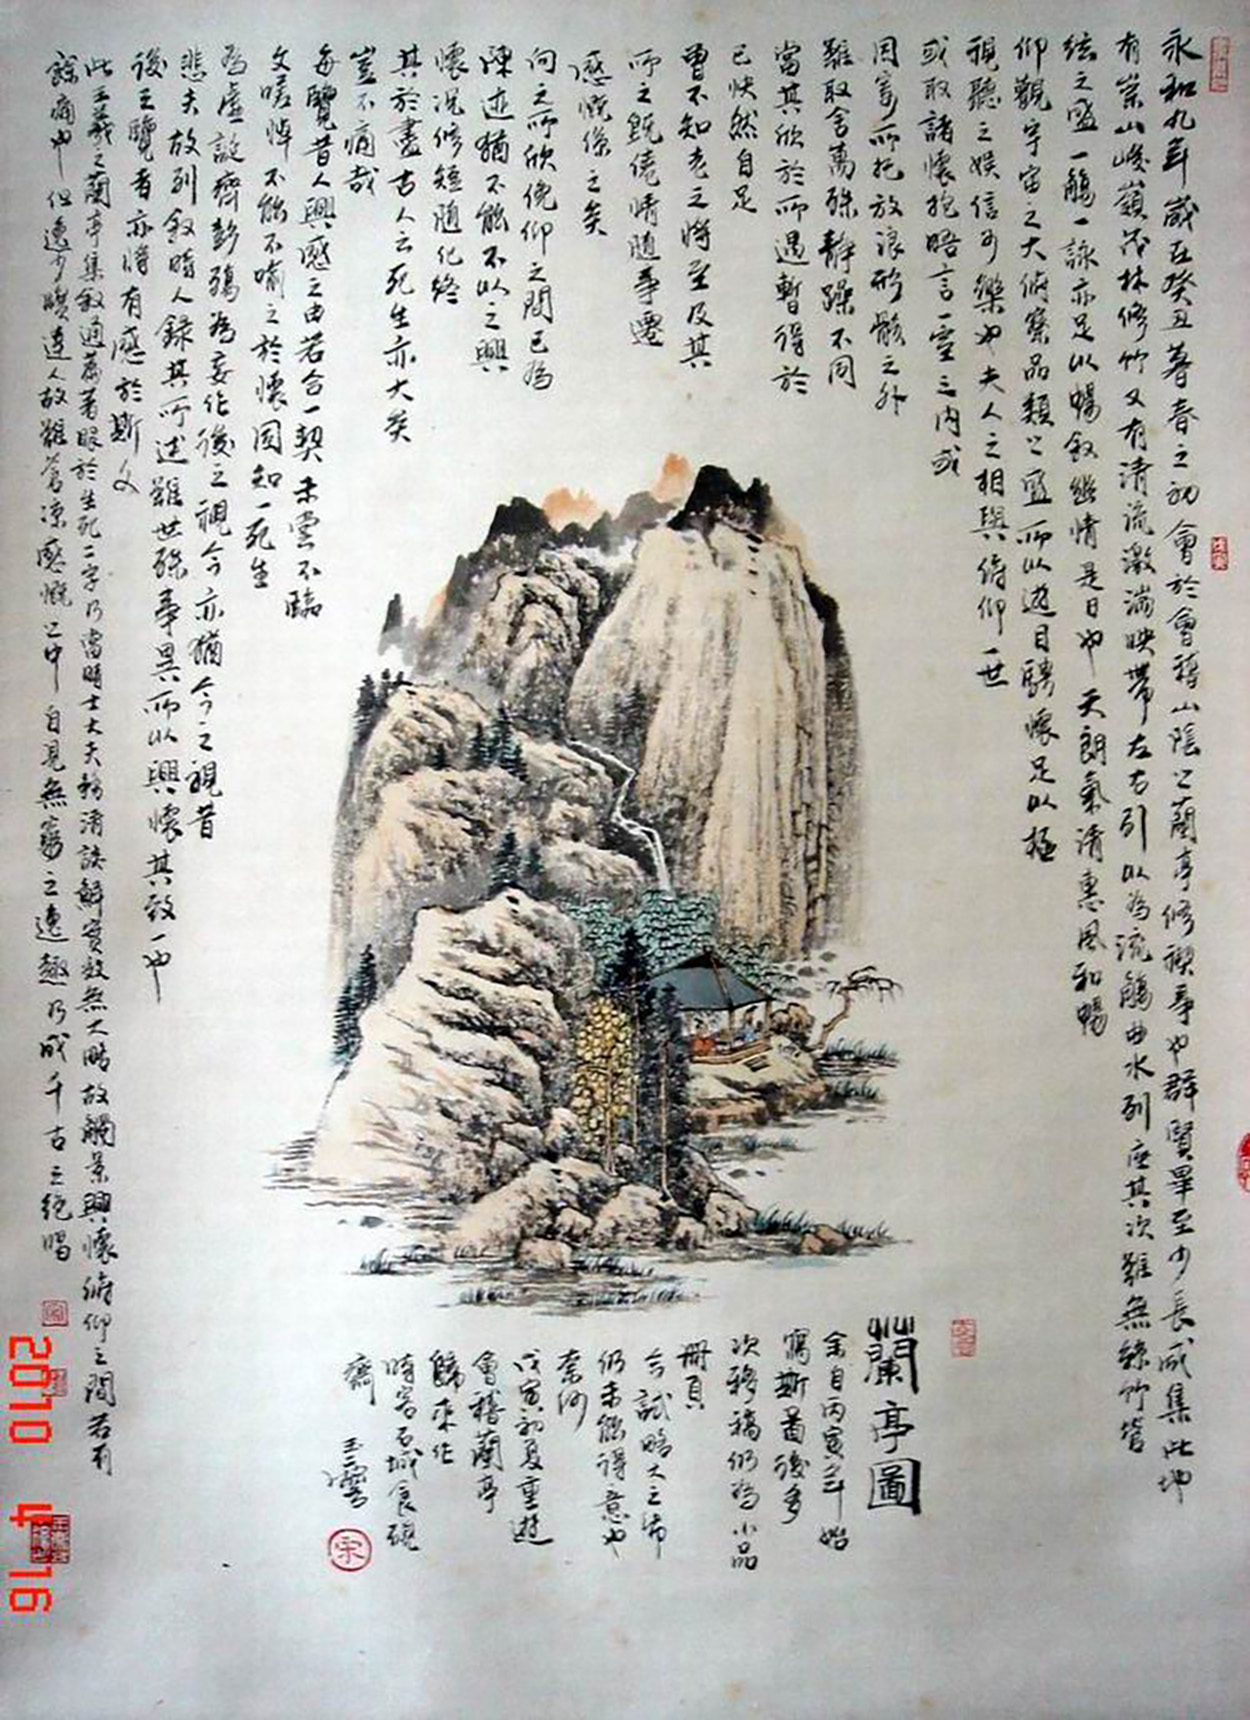 永和九年歲在癸丑暮春之初會於會稽山陰之蘭亭修禊事也群賢畢至少長咸集此地
有崇山峻嶺茂林修竹又有清流激湍映帶左右引以為流觴曲水列座其次雖無絲竹管
絃之盛一觴一詠亦足以暢敘幽情是日也天朗氣清惠風和暢
仰觀宇宙之大俯察品類之盛所以遊目騁懷足以極
視聽之娛信可樂也夫人之相與俯仰一世
或取諸懷抱晤言一室之內或
因寄所托放浪形骸之外
雖取舍萬殊靜躁不同
當其欣於所遇暫得於
己快然自足
曾不知老之將至及其
所之既倦情隨事遷
感慨係之矣
向之所欣俛仰之間已為
陳迹猶不能不以之興
懷況修短隨化終
其於盡古人云死生亦大矣
豈不痛哉
每覽昔人興感之由若合一契未嘗不臨
文嗟悼不能不喻之於懷固知一死生
為虛誕齊彭殤為妄作後之視今亦猶今之視昔
悲夫故列敘時人錄其所述雖世殊事異所以興懷其致一也
後之覽者亦將有感於斯文
此王羲之蘭亭集敘通篇著眼於生死二字乃當時士大夫務清談鮮實效無大略故觸景興懷俯仰之間若有
餘痛也但逸少曠達人故雖蒼涼感慨之中自見無窮之逸趣乃成千古之絕唱
蘭亭圖
余自丙寅年始
寫斯圖後多
次移稿仍為小品
冊頁
今試略大之帋
仍未能得意也
奈何
戊寅初夏重遊
會稽蘭亭
歸來作
時客石城食硯
齋
宋
2010 4 16